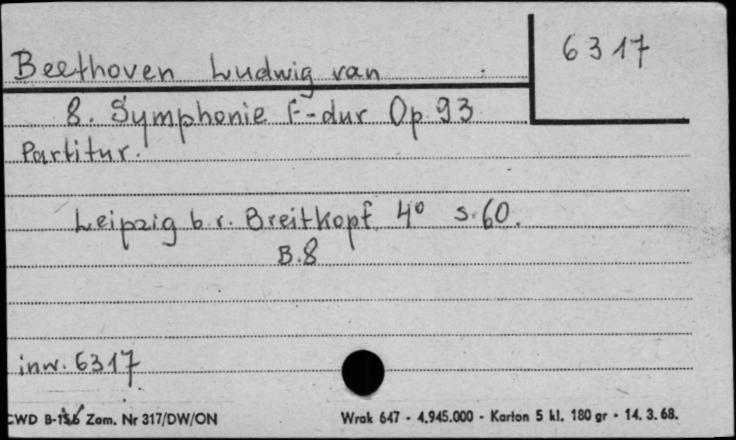 6317
Beethoven Ludwig van
8. Symphonie F-dur Op. 93
Partitur.
Leipzig b. r. Breitkopf 4° s. 60.
B. 8
inw. 6317
CWD B-156 Zam. Nr 317/DW/ON
Wrak 647 - 4.945.000 - Karton 5 kl. 180 gr - 14. 3. 68.